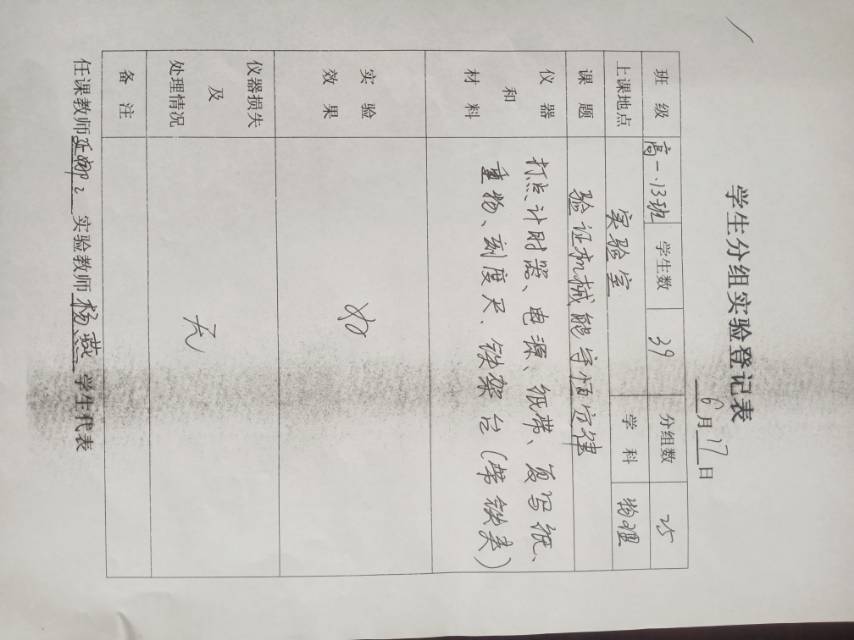 学生分组实验登记表
6月17日
班级 高一.13班 学生数 39 分组数 25
上课地点 实验室 学科 物理
课题 验证机械能守恒定律
仪器和材料 打点计时器、电源、纸带、复写纸、
重物、刻度尺、铁架台(带铁夹)
实验效果 好
仪器损失及处理情况 无
备注
任课教师 实验教师 杨燕 学生代表